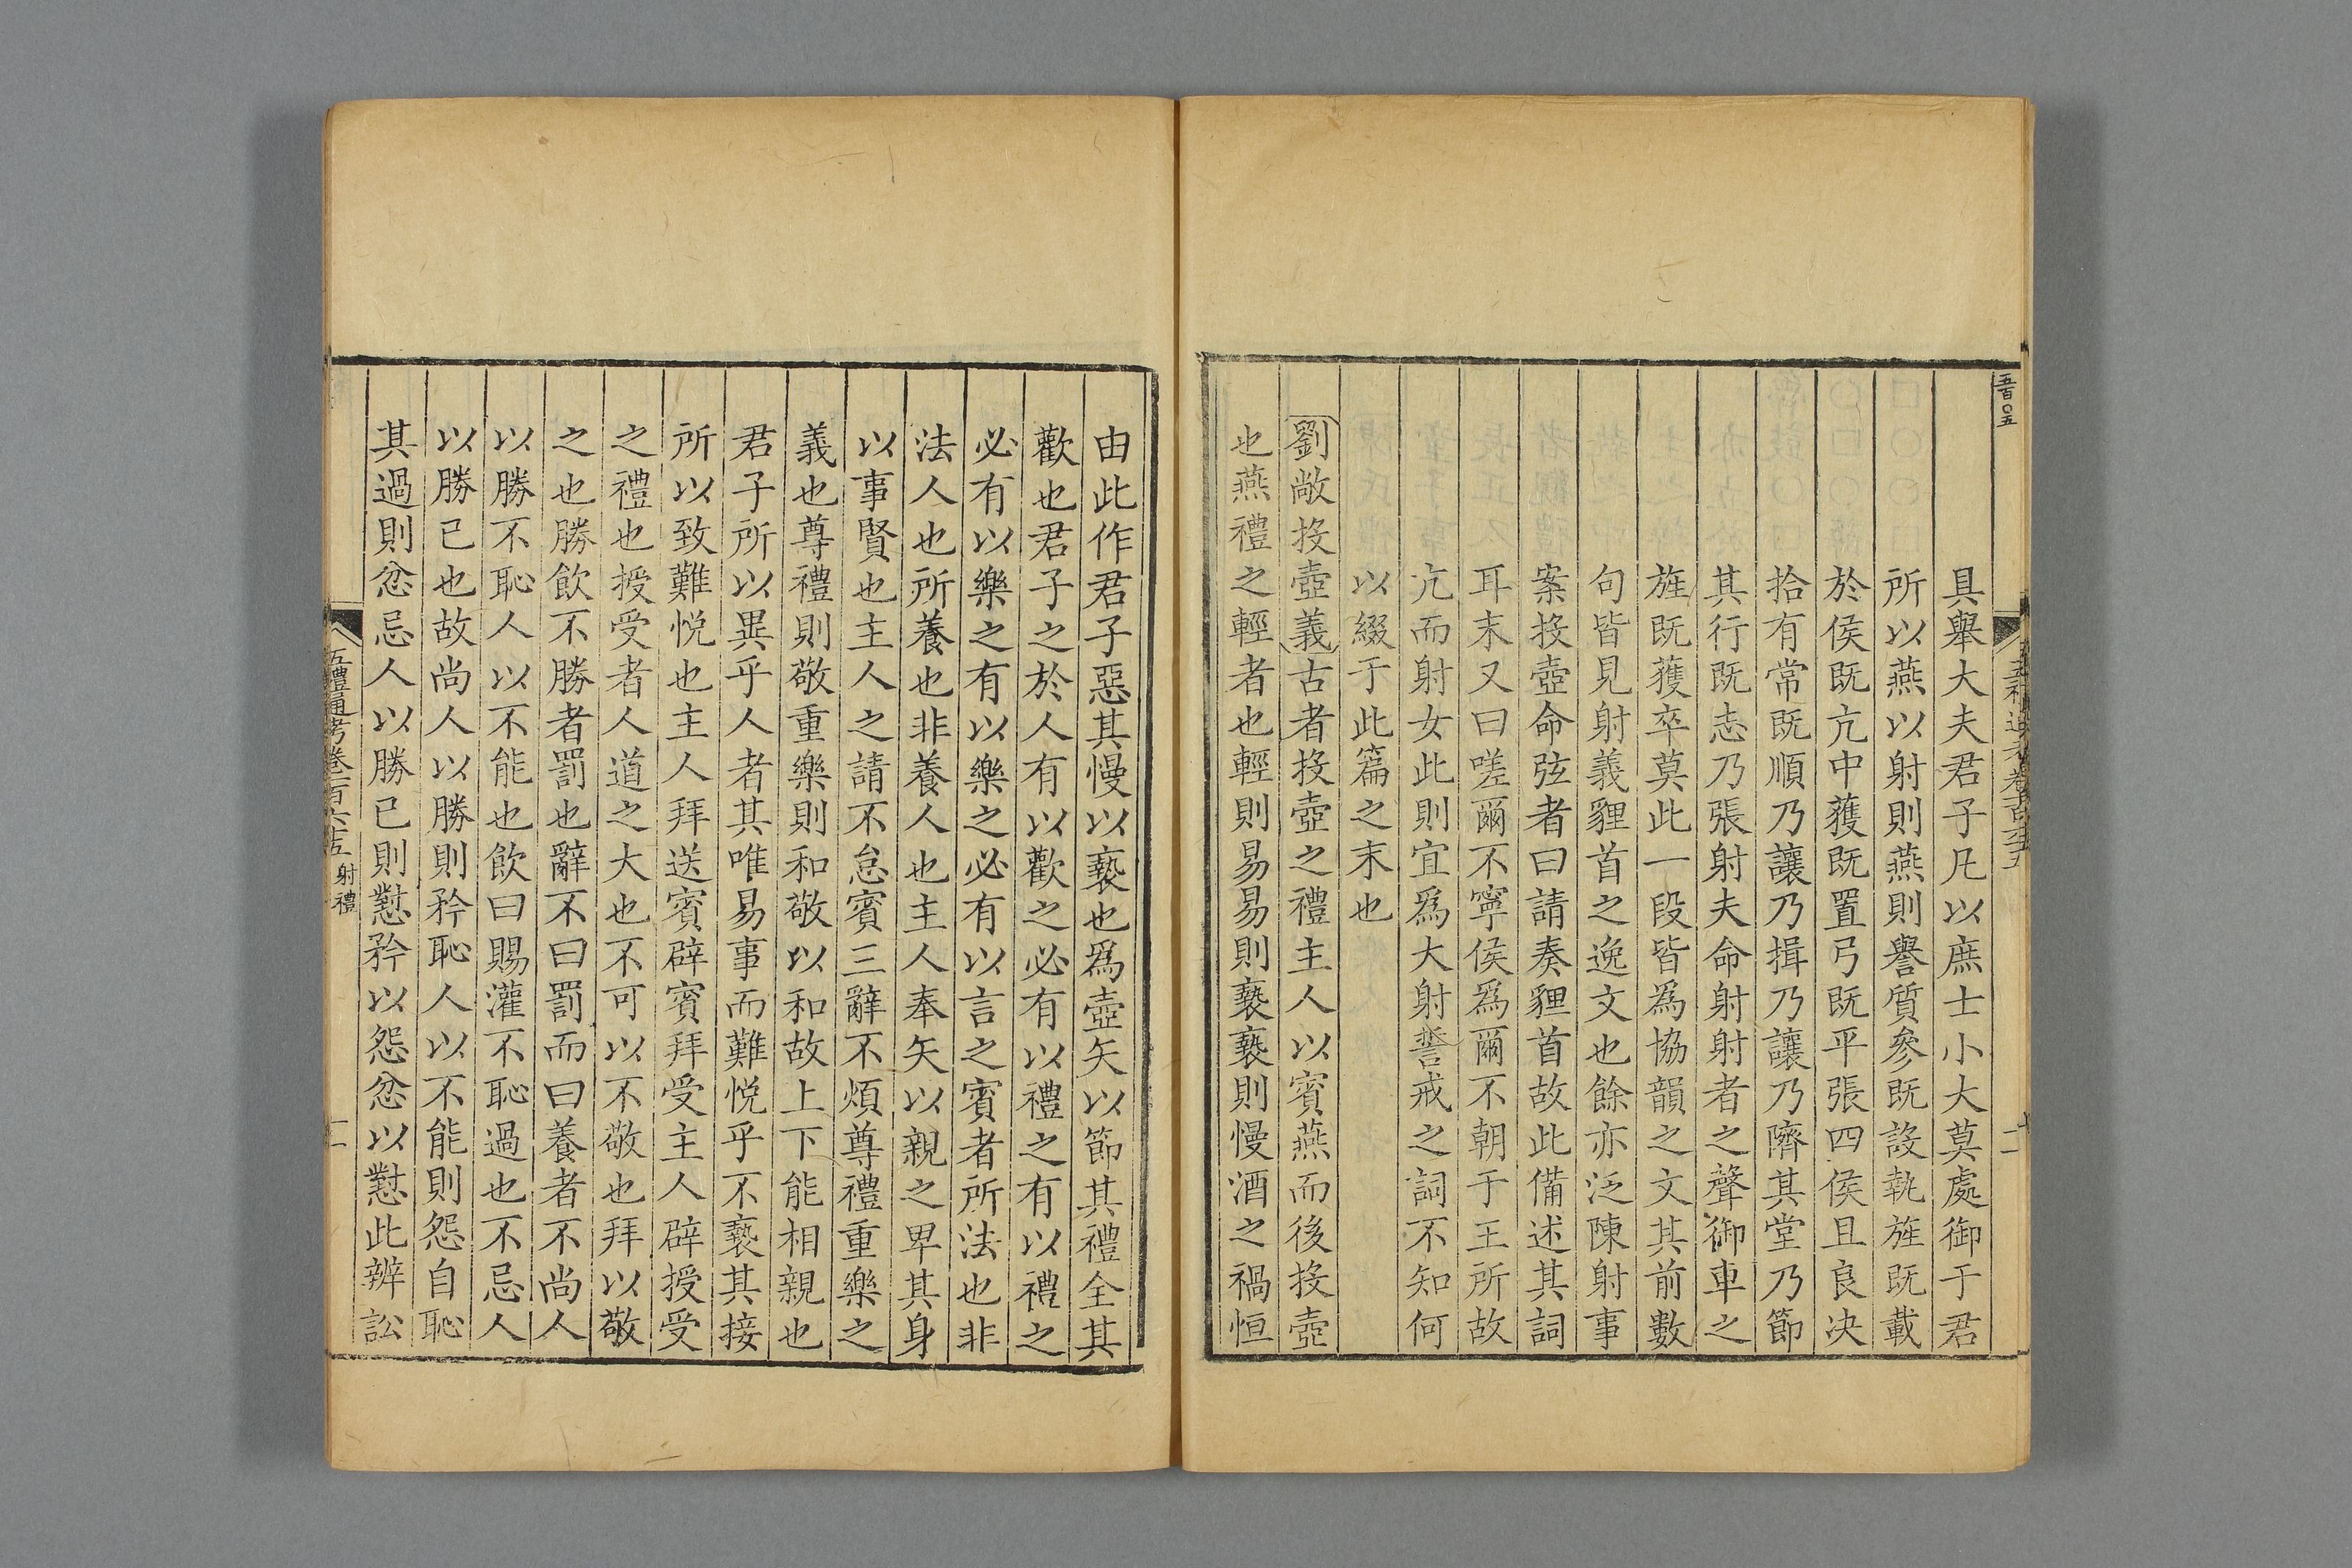 五百〇五
具舉大夫君子凡以庶士小大莫處御于君
所以燕以射則燕則譽質參既設執旌既載
於侯既亢中獲既置弓既平張四侯且良决
拾有常既順乃讓乃揖乃讓乃隮其堂乃節
其行既志乃張射夫命射射者之聲御車之
旌既獲卒莫此一段皆爲協韻之文其前數
句皆見射義貍首之逸文也餘亦泛陳射事
案投壺命弦者曰請奏貍首故此備述其詞
耳末又曰嗟爾不寧侯爲爾不朝于王所故
亢而射女此則宜爲大射誓戒之詞不知何
以綴于此篇之末也
劉敞投壺義古者投壺之禮主人以賓燕而後投壺
也燕禮之輕者也輕則易易則褻褻則慢酒之禍恒
由此作君子惡其慢以褻也爲壺矢以節其禮全其
歡也君子之於人有以歡之必有以禮之有以禮之
必有以樂之有以樂之必有以言之賓者所法也非
法人也所養也非養人也主人奉矢以親之卑其身
以事賢也主人之請不怠賓三辭不煩尊禮重樂之
義也尊禮則敬重樂則和敬以和故上下能相親也
君子所以異乎人者其唯易事而難悅乎不褻其接
所以致難悅也主人拜送賓辟賓拜受主人辟授受
之禮也授受者人道之大也不可以不敬也拜以敬
之也勝飲不勝者罰也辭不曰罰而曰養者不尚人
以勝不恥人以不能也飲曰賜灌不恥過也不忌人
以勝已也故尚人以勝則矜恥人以不能則怨自恥
其過則忿忌人以勝已則懟矜以怨忿以懟此辨訟
五禮通考卷一百六十五 射禮